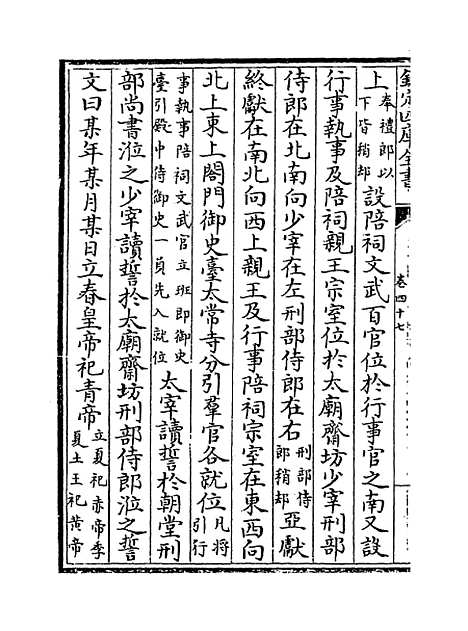 欽定四庫全書
卷四十七
上奉禮郎以下皆稍却設陪祠文武百官位於行事官之南又設
行事執事及陪祠親王宗室位於太廟齋坊少宰刑部
侍郎在北南向少宰在左刑部侍郎在右刑部侍郎稍却亞獻
終獻在南北向西上親王及行事陪祠宗室在東西向
北上東上閤門御史臺太常寺分引羣官各就位凡將引行
事執事陪祠文武官立班即御史臺引殿中侍御史一員先入就位太宰讀誓於朝堂刑
部尚書涖之少宰讀誓於太廟齋坊刑部侍郎涖之誓
文曰某年某月某日立春皇帝祀青帝立夏祀赤帝季夏土王祀黄帝